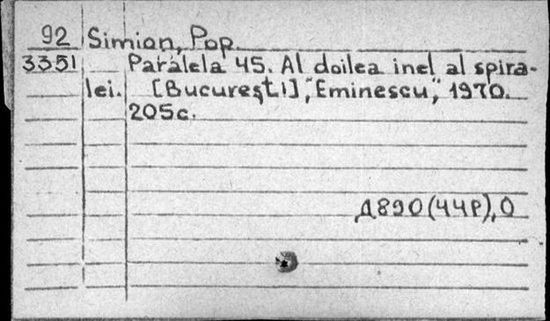 92 Simion, Pop.
3351 Paralela 45. Al doilea inel al spira-
lei. [Bucureşti], "Eminescu", 1970.
205c.
Д890(44Р),0